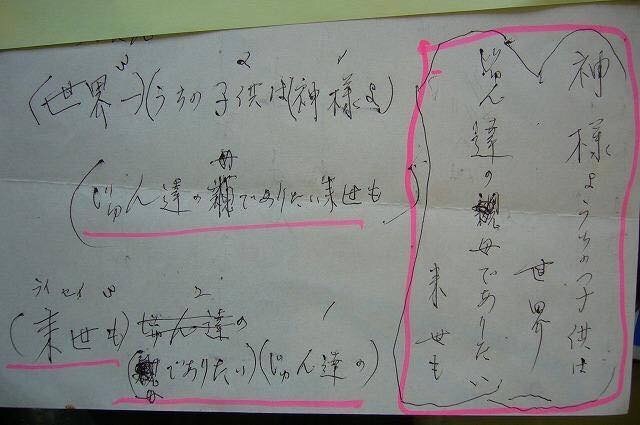 神様ようちの子供は
世界一
じゅん達の母でありたい
来世も
3 2 1
(世界一)(うちの子供は(神様よ)
母
(じゅん達の でありたい来世も)
ライセイ 3 2 1
(来世も) じゅん達の
( でありたい)(じゅん達の)
母